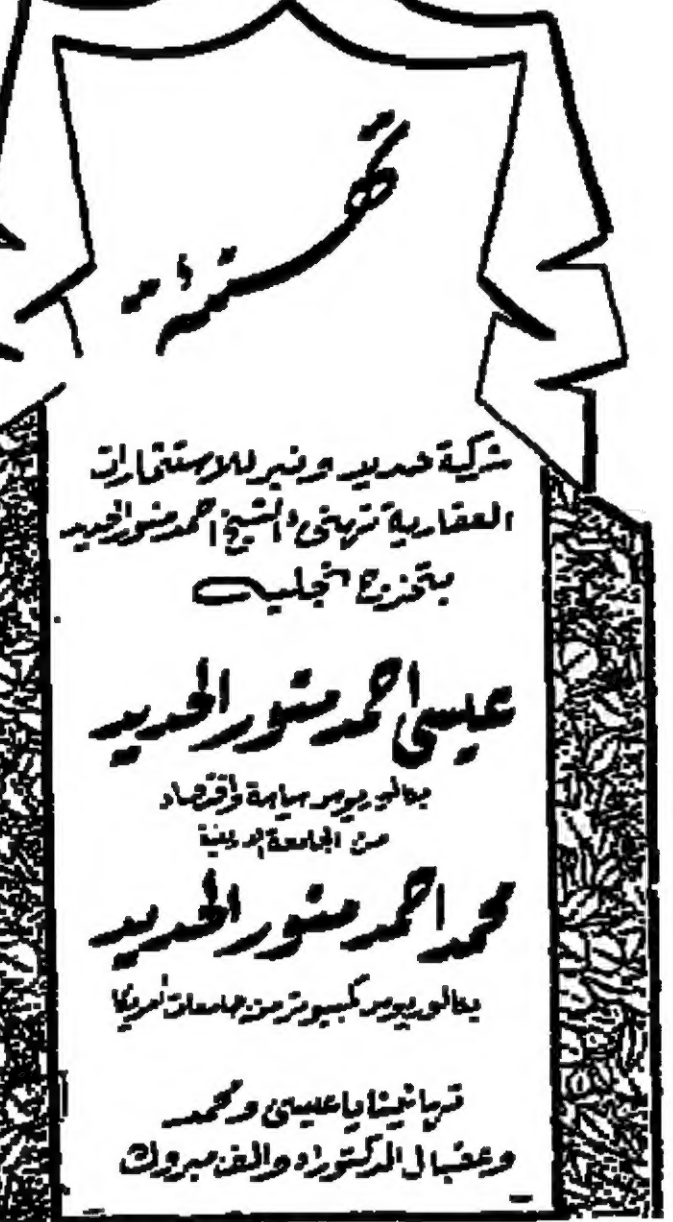 تهنئة
شركة حديد ومنير للاستثمارات
العقارية تهنئ الشيخ احمد منور الحديد
بتخرج نجليه
عيسى احمد منور الحديد
بكالوريوس سياسة واقتصاد
من الجامعة الاردنية
محمد احمد منور الحديد
بكالوريوس كمبيوتر من جامعات أمريكا
تهانينا يا عيسى ومحمد
وعقبال الدكتوراه والف مبروك